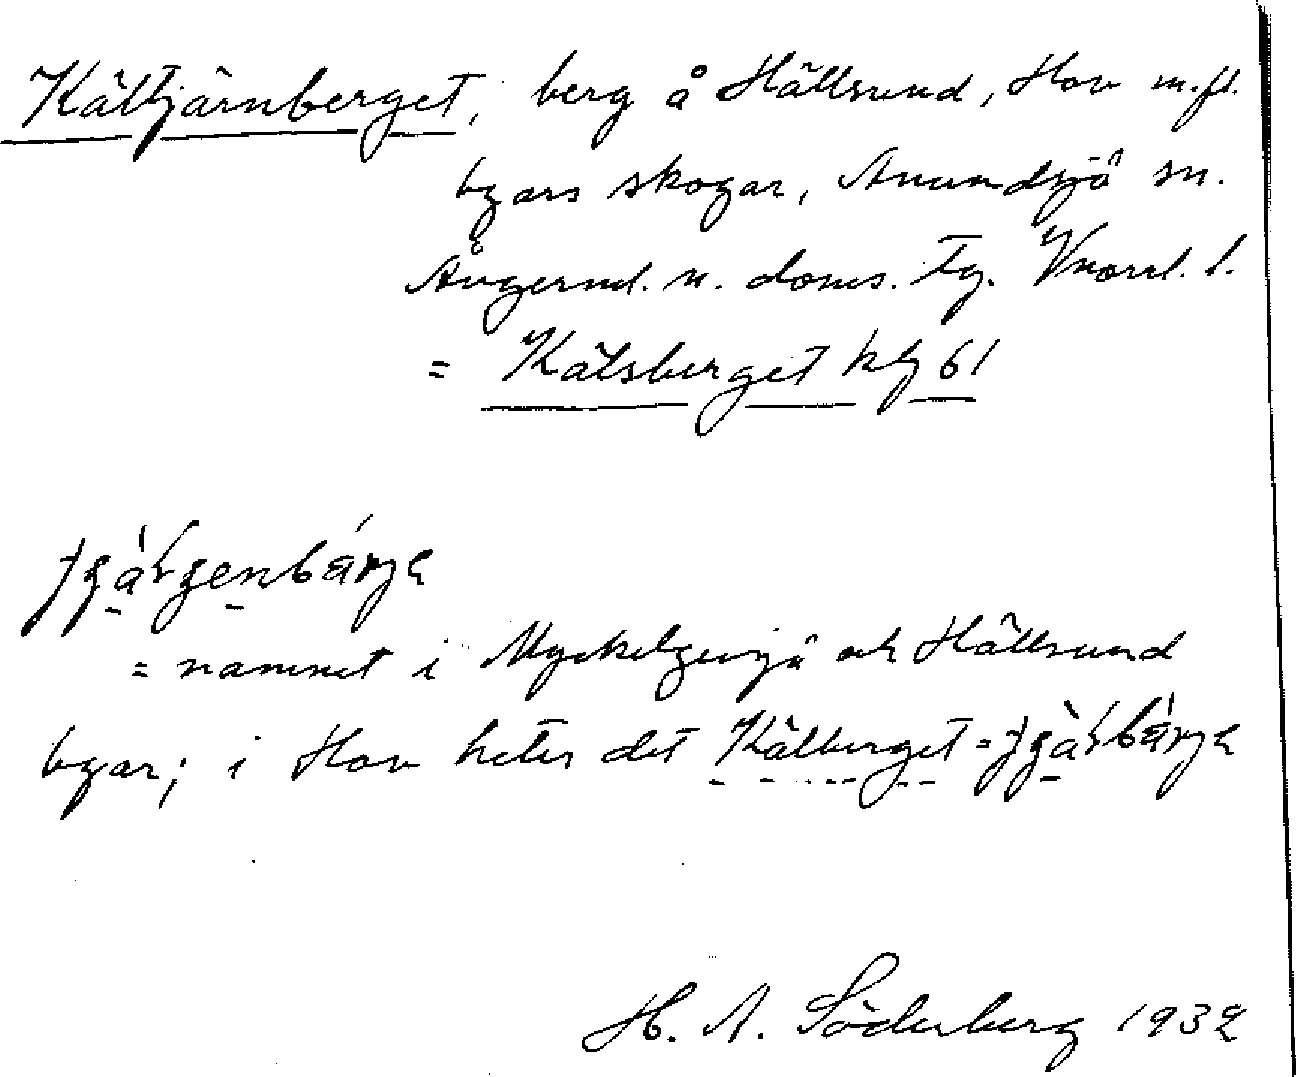 Kältjärnberget, berg å Hällsund, Hov m.fl.
byars skogar, Anundsjö sn.
Ångermd. n. doms. Tg. Vnorrl. l.
= Kälsberget kbl 61
= namnet i Myckelgensjö och Hällsund
byar; i Hov heter det Kälberget =
H. A. Söderberg 1932